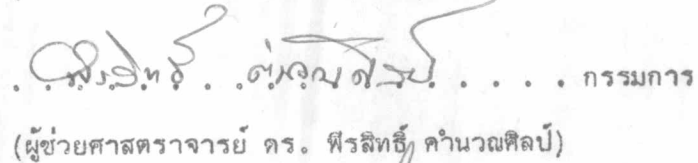 พีรสิทธิ์ คำนวณศิลป์ . . . . . กรรมการ
(ผู้ช่วยศาสตราจารย์ ดร. พีรสิทธิ์ คำนวณศิลป์)